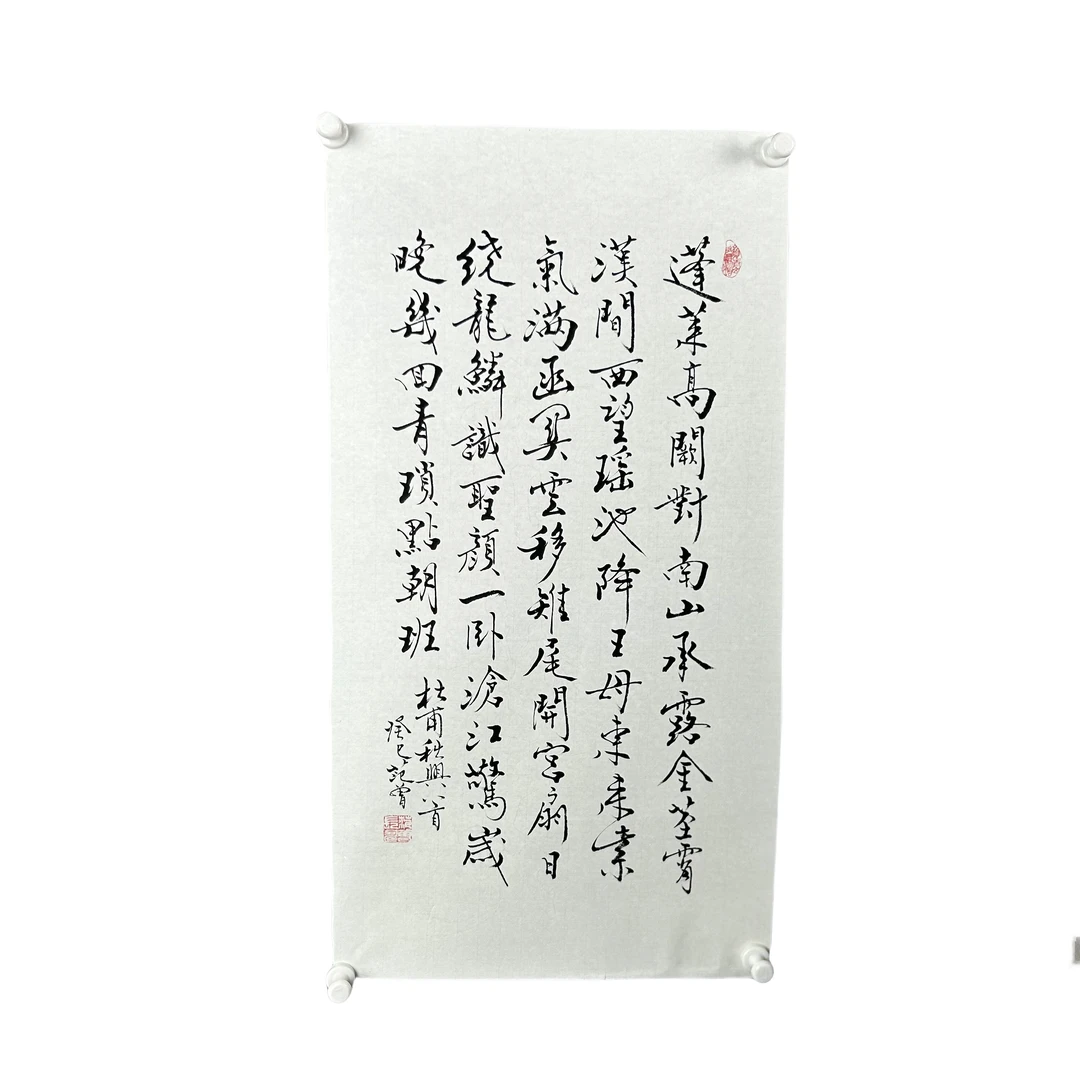 蓬莱高闕對南山承露金莖霄
漢間西望瑶池降王母東来紫
氣满函関雲移雉尾開宮扇日
绕龍鱗識聖顔一卧滄江驚歲
晚幾回青瑣點朝班
杜甫秋興八首
癸巳